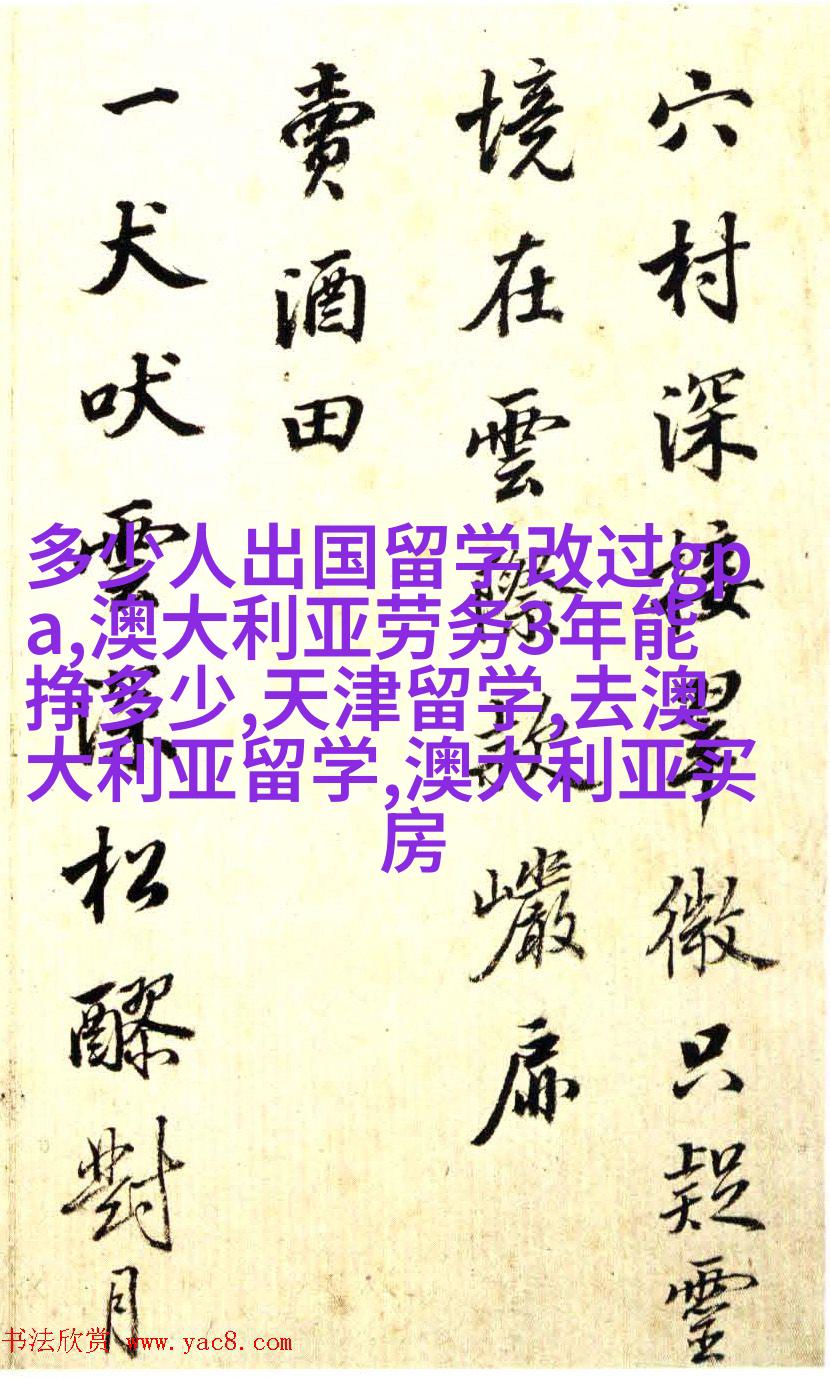 穴村深接翠微只疑靈
境在雲際款巖扉
賣酒田
一犬吠雲深松醪對月
多少人出国留学改过gp
a,澳大利亚劳务3年能
挣多少,天津留学,去澳
大利亚留学,澳大利亚买
房
书法欣赏 www.yac8.com